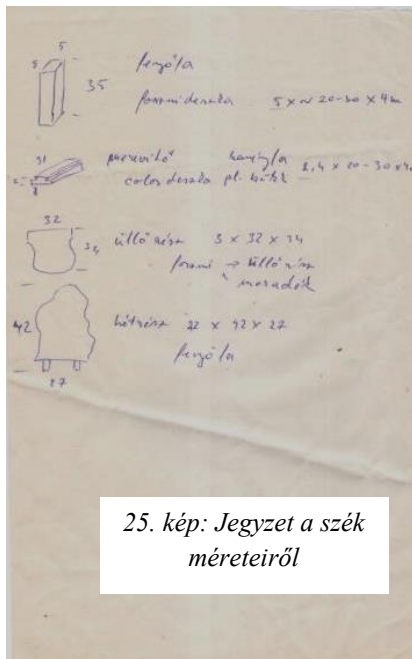 5
5 fenyőfa
35
foszni deszka 5 x ~ 20-30 x 4m
31 merevitő keményfa
colos deszka pl. bükk 2,4 x 20-30 x 4m
32
34 ülő rész 3 x 32 x 34
foszni → ülő rész
maradék
42 hátrész x 42 x 27
fenyőfa
27
25. kép: Jegyzet a szék
méreteiről